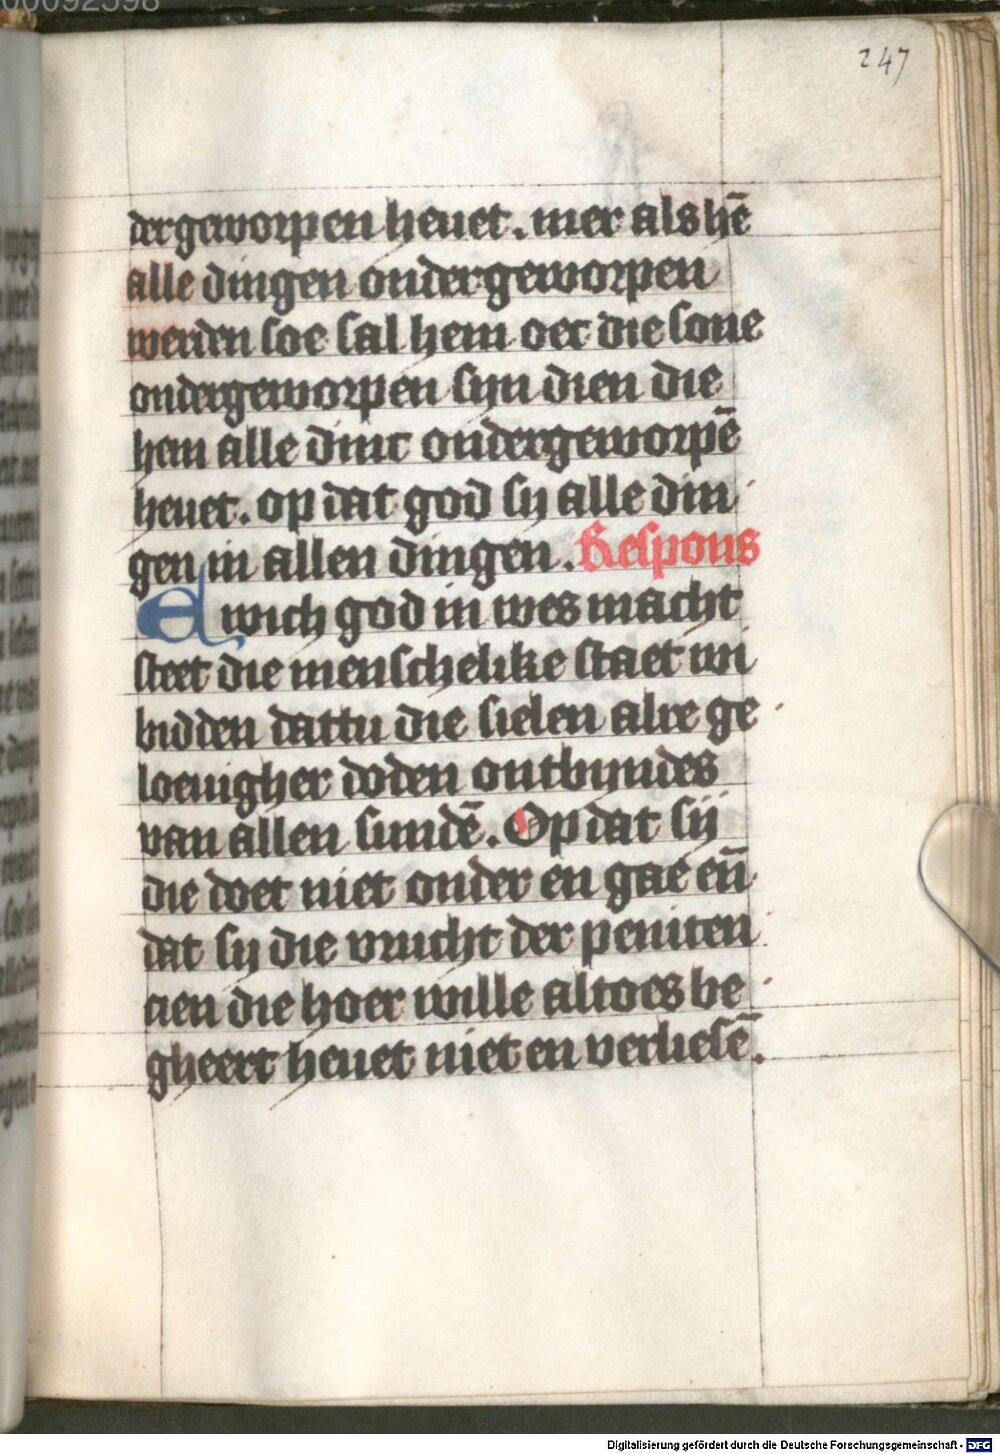 00092398
247
dergeworpen heuet. mer als hē
alle dingen ondergeworpen
werden soe sal hem oec die sone
ondergeworpen sijn dien die
hem alle dinc ondergeworpē
heuet. op dat god sij alle din
gen in allen dingen. Respons
Ewich god in wes macht
steet die menschelike staet wi
bidden dattu die sielen alre ge
loeuigher doden ontbyndes
van allen sundē. Op dat sij
die doet niet onder en gae eñ
dat sij die vrucht der peniten
cien die hoer wille altoes be
gheert heuet niet en verliesē.
Digitalisierung gefördert durch die Deutsche Forschungsgemeinschaft - DFG